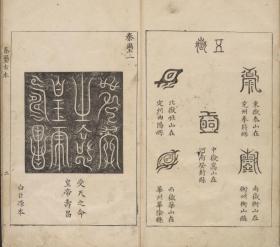 五嶽
東嶽泰山在
兗州奉符縣
南嶽衡山在
衡州衡山縣
中嶽嵩山在
河南登封縣
北嶽恒山在
定州曲陽縣
西嶽華山在
華州華陰縣
秦璽一
受天之命
皇帝壽昌
向巨源本
二